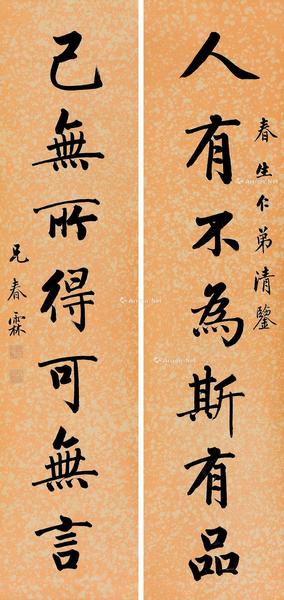 春生仁弟清鑒
人有不為斯有品
己無所得可無言
兄春霖